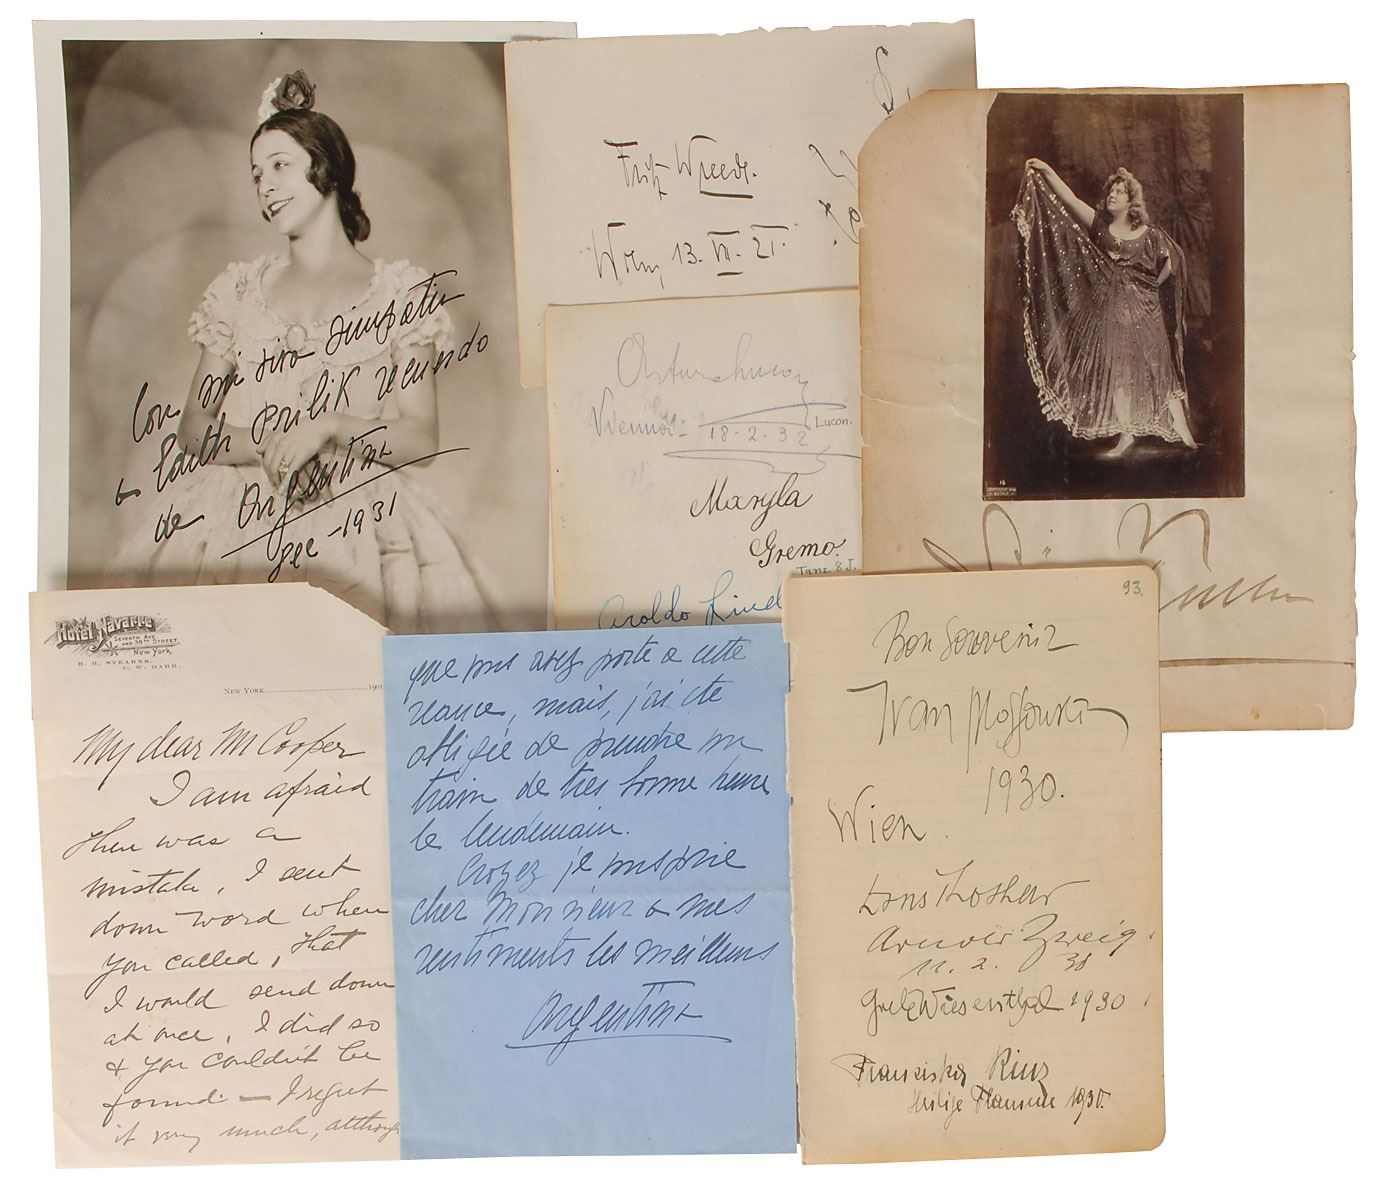 Con mi viva simpatia
a Edith Prilik recuerdo
de Argentina
Dec - 1931
Fritz Wreede.
Wien, 13. VII. 21.
Vienna - 18-2-32
Lucon.
Maryla
Gremo.
Tanz 8 J.
Aroldo Lind
16
Hotel Navarre
Seventh Ave
and 38th Street.
New York.
New York 190
My dear Mr Cooper
I am afraid
there was a
mistake, I sent
down word when
you called, that
I would send down
at once, I did so
& you couldn't be
found — I regret
it very much, although
que vous avez porté a cette
séance, mais, j'ai été
obligée de prendre un
train de tres bonne heure
le lendemain.
Croyez je vous prie
cher Monsieur a mes
sentiments les meilleurs
Argentina
93.
Bon Souvenir
Ivan
1930.
Wien.
Arnold Zweig.
11. 2. 30
Grete Wiesenthal 1930.
Heilige Flamme 1930.